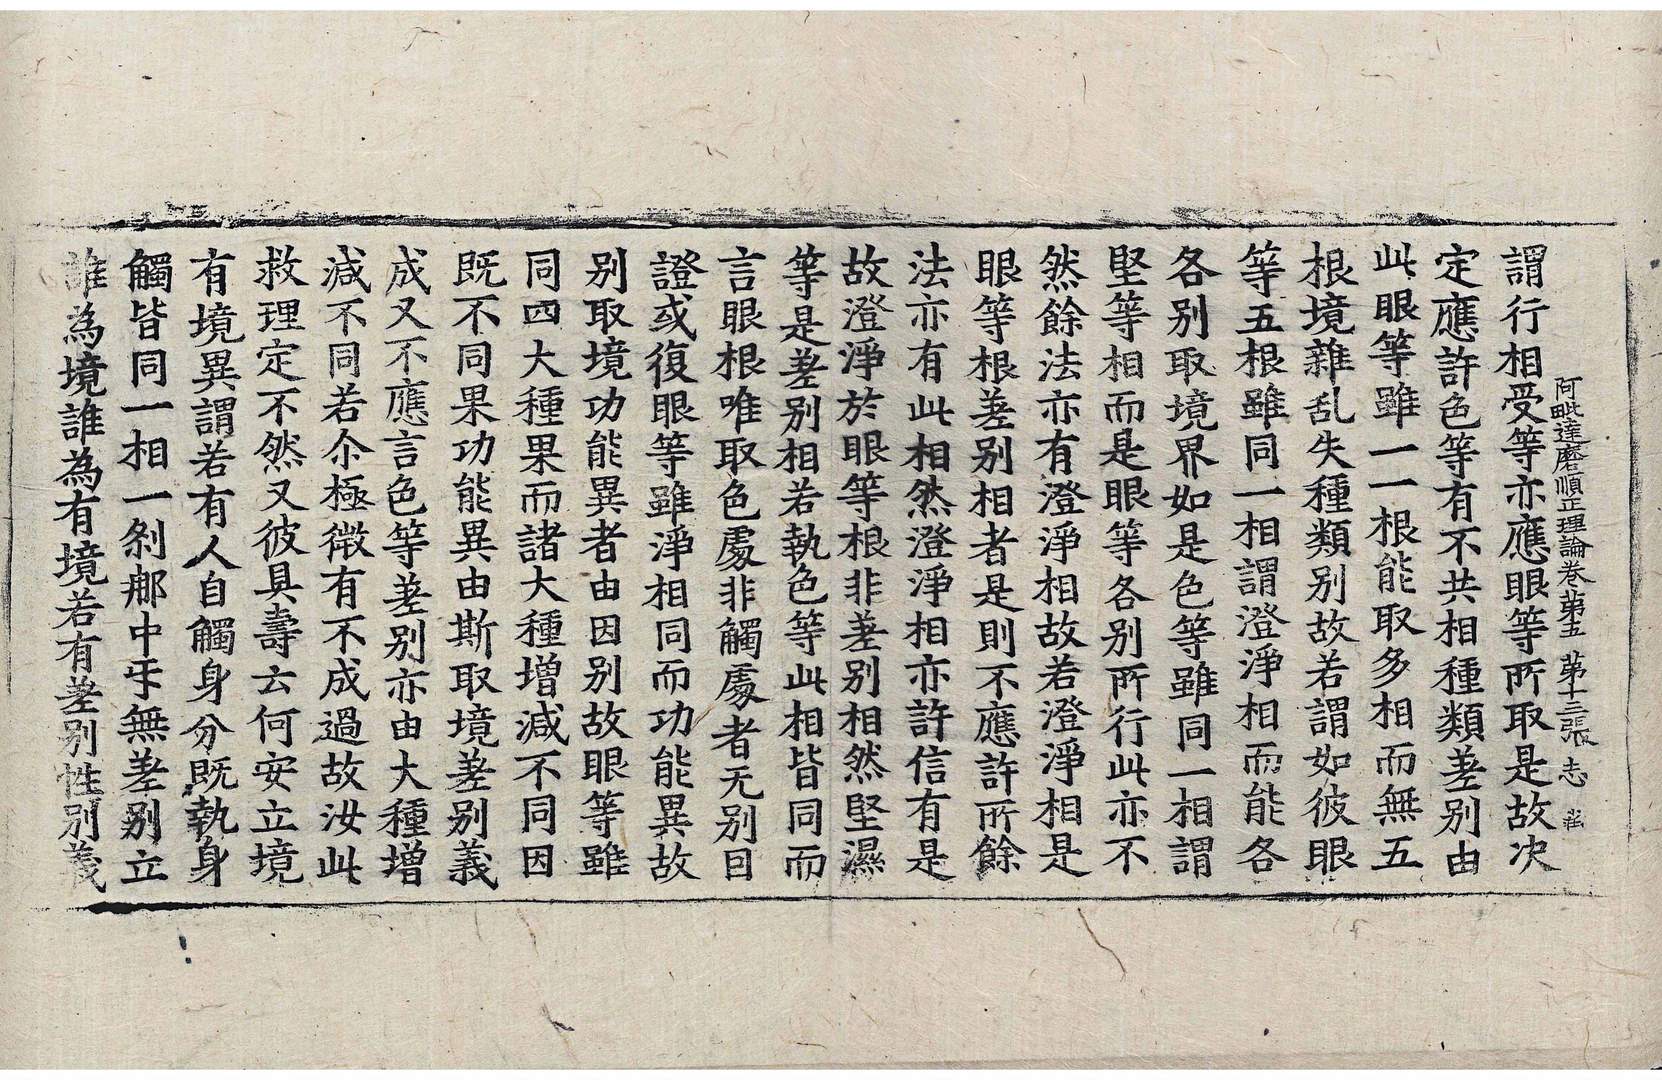 阿毗達磨順正理論卷第五 第十三張 志
謂行相受等亦應眼等所取是故决
定應許色等有不共相種類差别由
此眼等雖一一根能取多相而無五
根境雜乱失種類别故若謂如彼眼
等五根雖同一相謂澄淨相而能各
各别取境界如是色等雖同一相謂
堅等相而是眼等各别所行此亦不
然餘法亦有澄淨相故若澄淨相是
眼等根差别相者是則不應許所餘
法亦有此相然澄淨相亦許信有是
故澄淨於眼等根非差别相然堅濕
等是差别相若執色等此相皆同而
言眼根唯取色處非觸處者无别因
證或復眼等雖淨相同而功能異故
别取境功能異者由因别故眼等雖
同四大種果而諸大種增減不同因
既不同果功能異由斯取境差别義
成又不應言色等差别亦由大種增
減不同若尒極微有不成過故汝此
救理定不然又彼具壽云何安立境
有境異謂若有人自觸身分既執身
觸皆同一相一刹那中互無差别立
誰為境誰為有境若有差别性别義